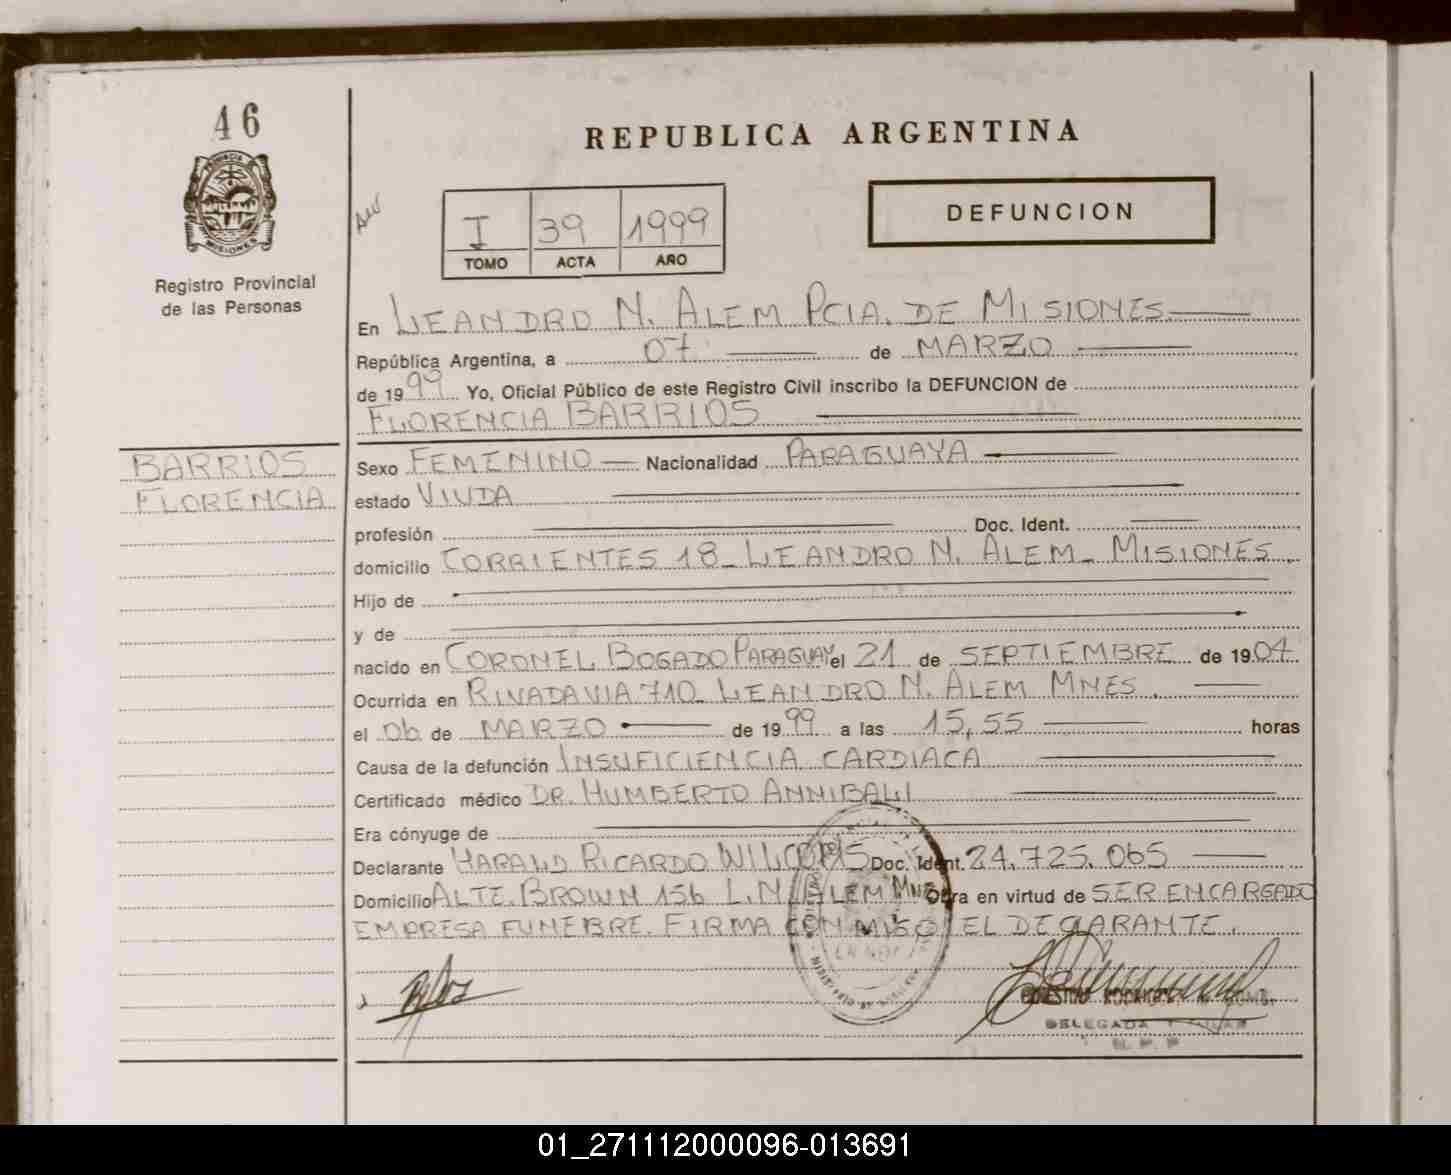 46
REPUBLICA ARGENTINA
DEFUNCION
I 39 1999
TOMO ACTA AÑO
Registro Provincial
de las Personas
En LEANDRO N. ALEM PCIA. DE MISIONES
República Argentina, a 07 de MARZO
de 1999 Yo, Oficial Público de este Registro Civil inscribo la DEFUNCION de
FLORENCIA BARRIOS
BARRIOS
FLORENCIA
Sexo FEMENINO Nacionalidad PARAGUAYA
estado VIUDA
profesión Doc. Ident.
domicilio CORRIENTES 18_ LEANDRO N. ALEM_ MISIONES
Hijo de
y de
nacido en CORONEL BOGADO PARAGUAY el 21 de SEPTIEMBRE de 1904
Ocurrida en RIVADAVIA 710_ LEANDRO N. ALEM MNES.
el 06 de MARZO de 1999 a las 15,55 horas
Causa de la defunción INSUFICIENCIA CARDIACA
Certificado médico DR. HUMBERTO ANNIBALI
Era cónyuge de
Declarante HARALD RICARDO Doc. Ident. 24.725.065
Domicilio ALTE. BROWN 156 L.N. ALEM MNES Obra en virtud de SER ENCARGADO
EMPRESA FUNEBRE. FIRMA CONMIGO EL DECLARANTE.
DELEGADA TITULAR
01_271112000096-013691